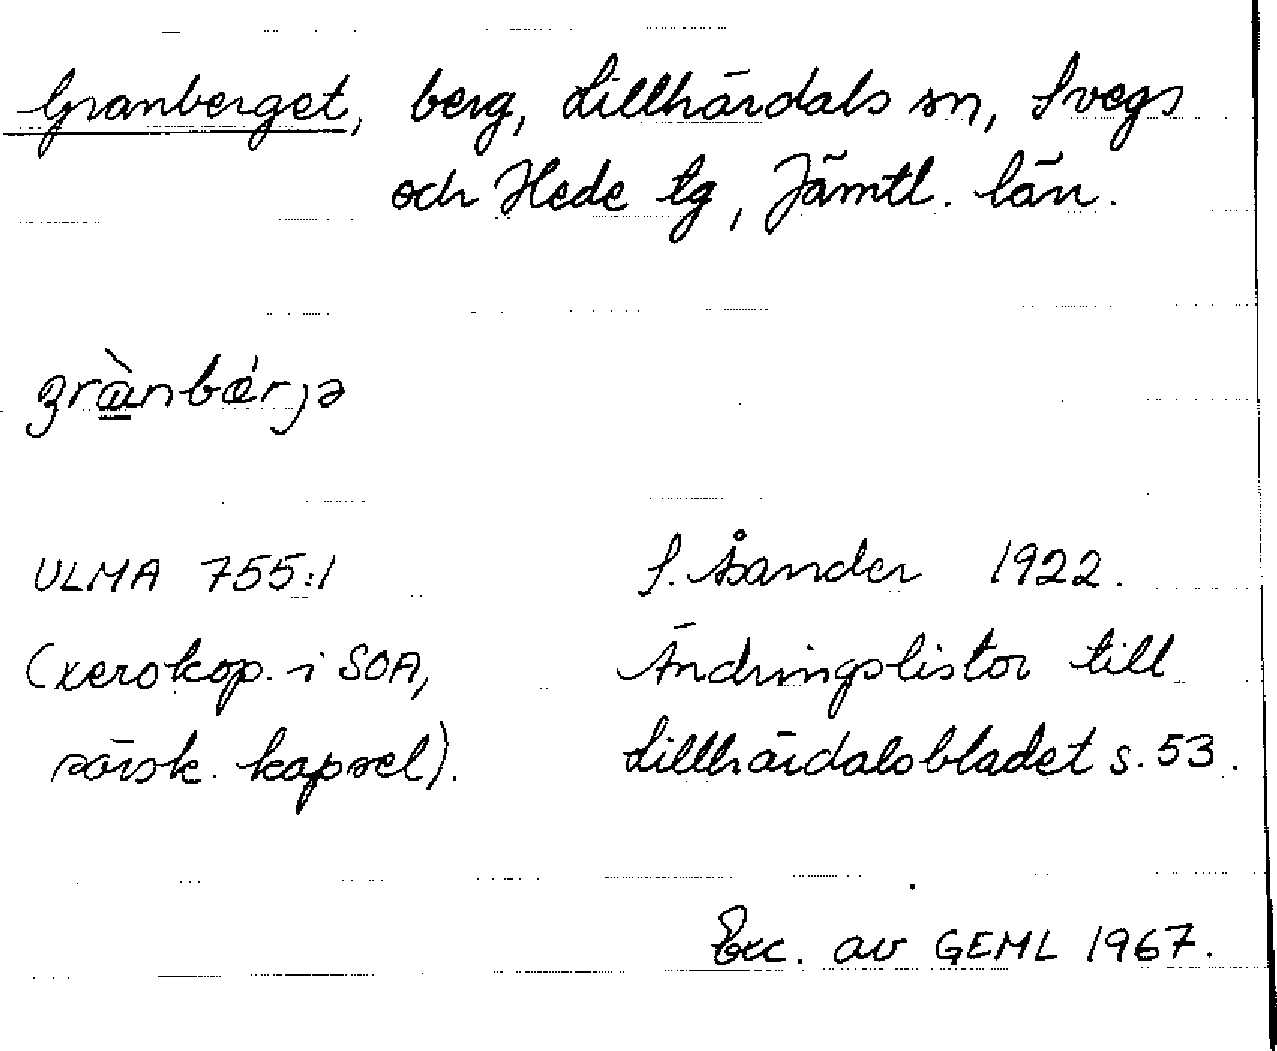 Granberget, berg, Lillhärdals sn, Svegs
och Hede tg, Jämtl. län.
grànbǽrjə
ULMA 755:1 S. Åsander 1922.
(xerokop. i SOA, Ändringslistor till
särsk. kapsel). Lillhärdalsbladet s. 53.
Exc. av GEML 1967.